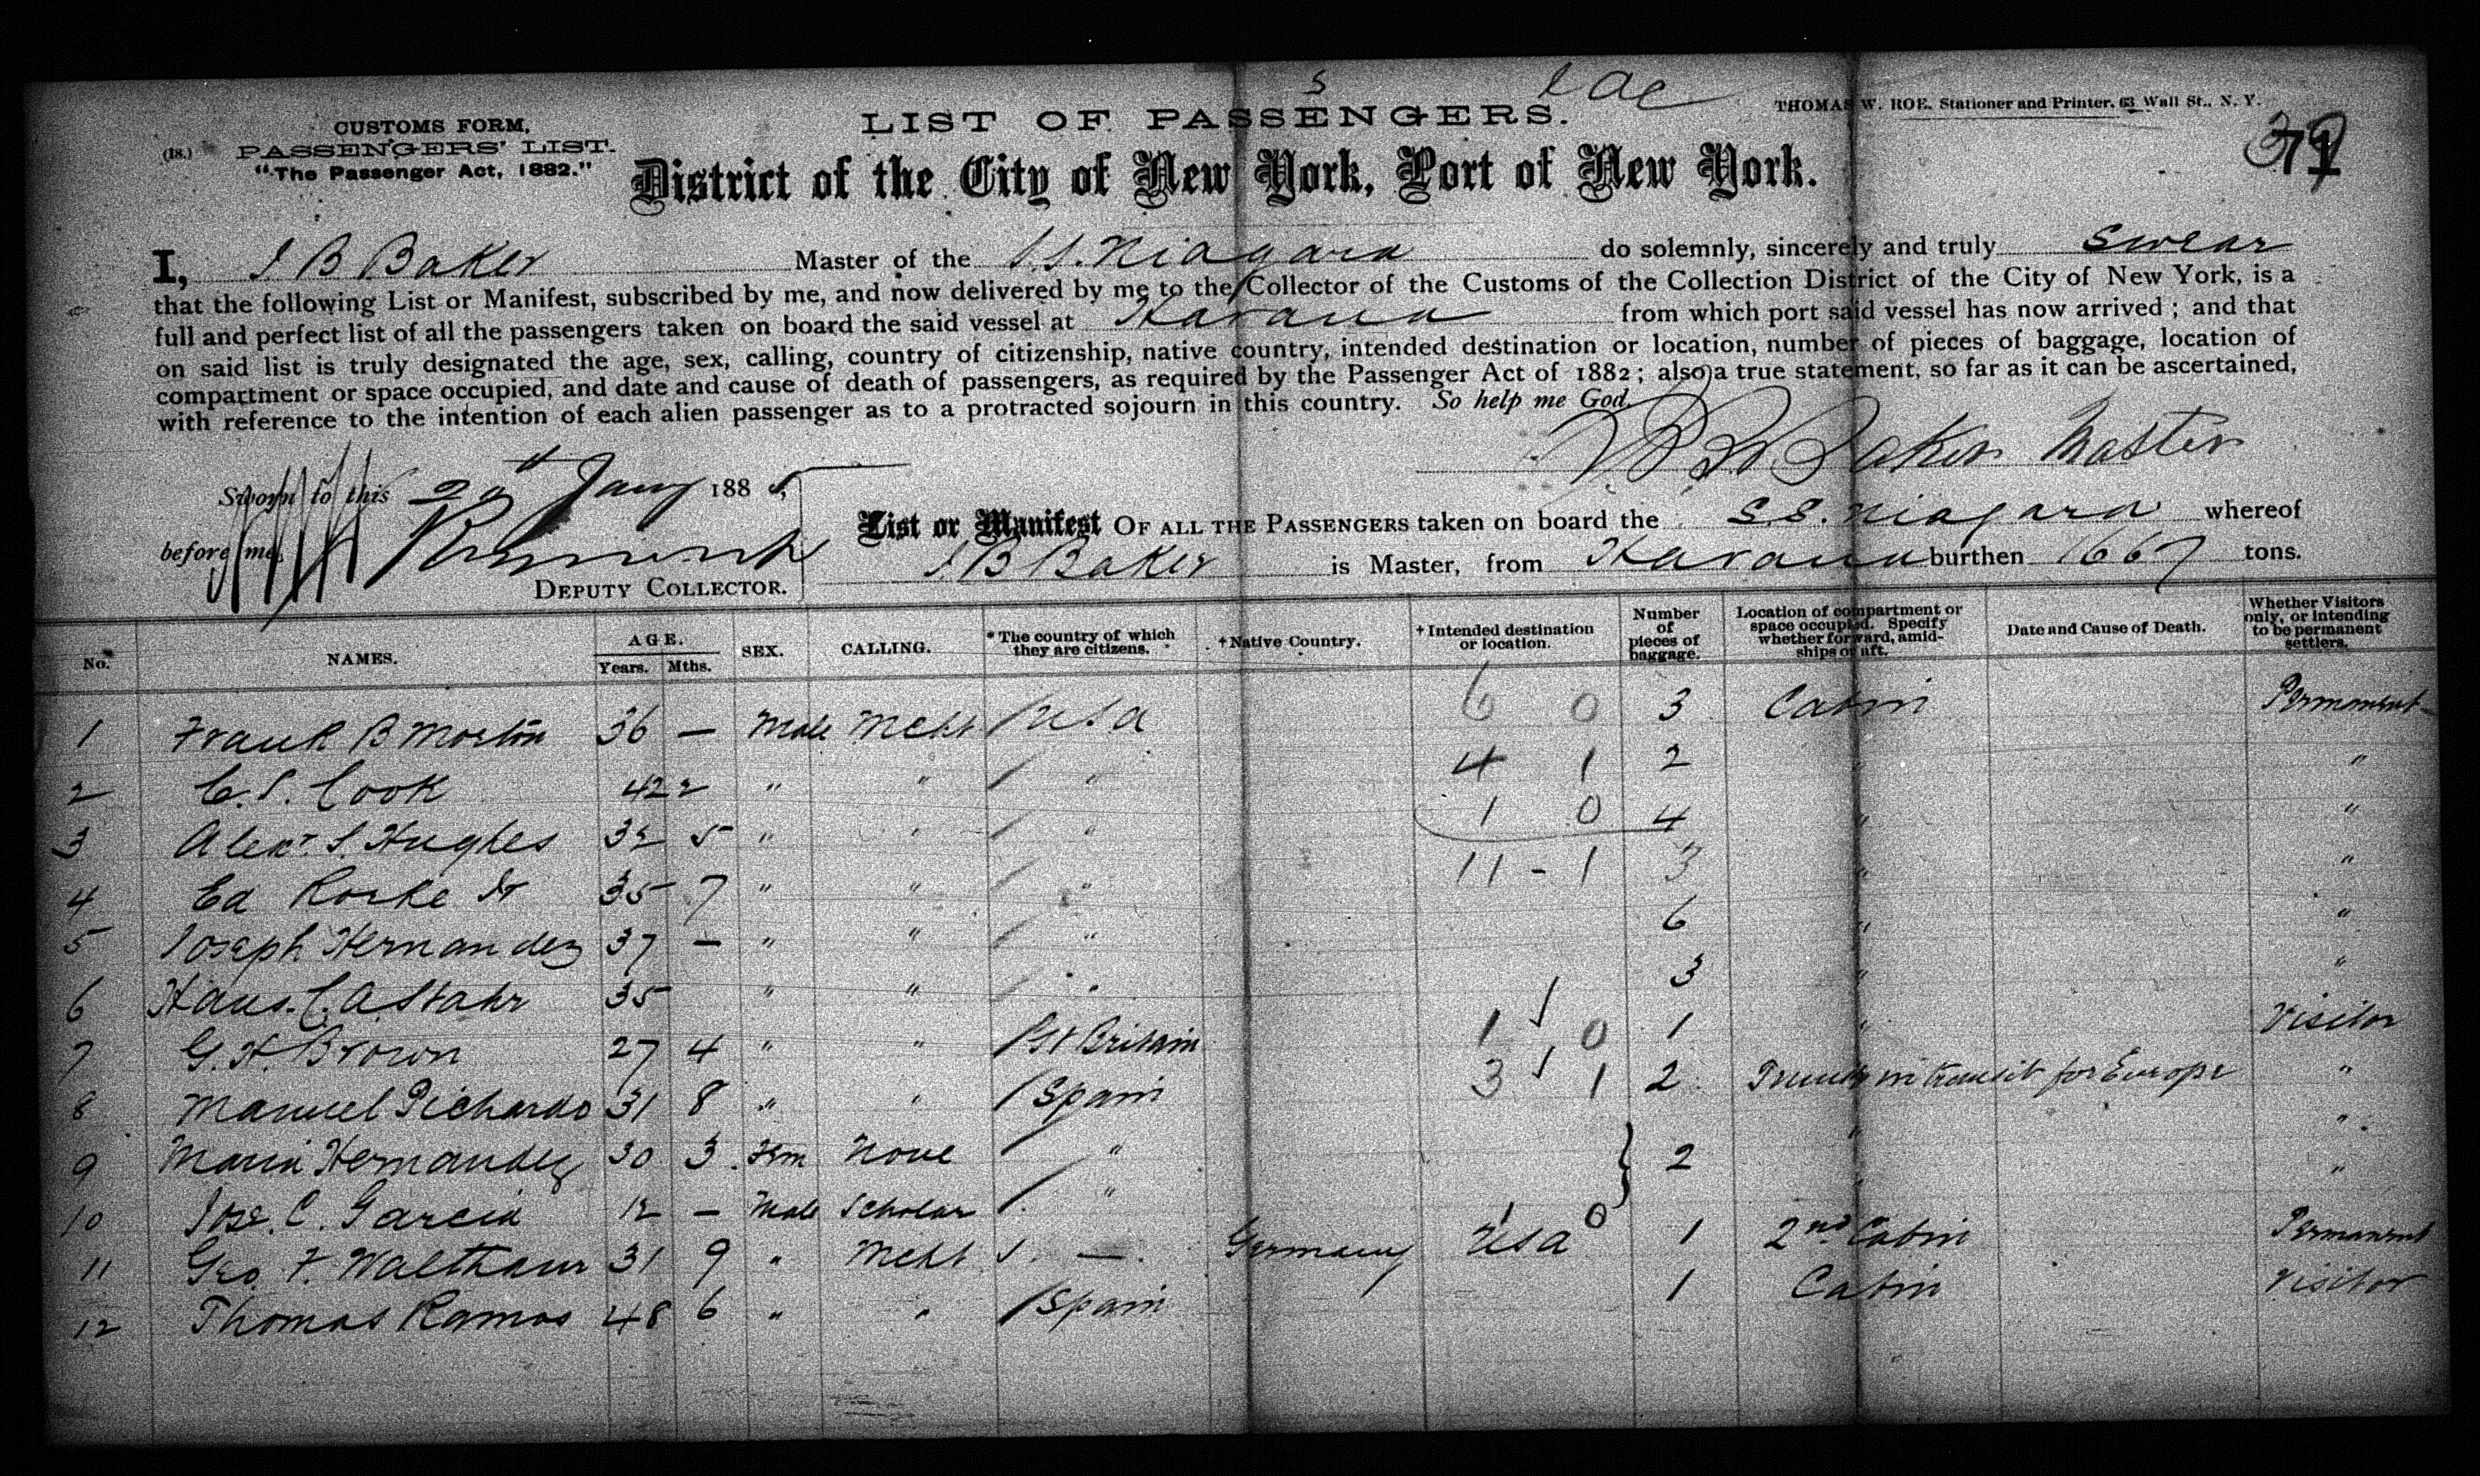 S
CUSTOMS FORM,
(18.) PASSENGERS' LIST.
"The Passenger Act, 1882."
LIST OF PASSENGERS.
THOMAS W. ROE, Stationer and Printer, 63 Wall St., N. Y.
District of the City of New York, Port of New York.
I, J B Baker Master of the S.S. Niagara do solemnly, sincerely and truly swear
that the following List or Manifest, subscribed by me, and now delivered by me to the Collector of the Customs of the Collection District of the City of New York, is a
full and perfect list of all the passengers taken on board the said vessel at Havana from which port said vessel has now arrived ; and that
on said list is truly designated the age, sex, calling, country of citizenship, native country, intended destination or location, number of pieces of baggage, location of
compartment or space occupied, and date and cause of death of passengers, as required by the Passenger Act of 1882 ; also a true statement, so far as it can be ascertained,
with reference to the intention of each alien passenger as to a protracted sojourn in this country. So help me God.
Baker Master
Sworn to this 20th Jany 1885
before me,
DEPUTY COLLECTOR.
List or Manifest OF ALL THE PASSENGERS taken on board the S.S. Niagara whereof
J B Baker is Master, from Havana burthen 1667 tons.
No. NAMES. AGE. Years. Mths. SEX. CALLING. * The country of which they are citizens. † Native Country. † Intended destination or location. Number of pieces of baggage. Location of compartment or space occupied. Specify whether forward, amidships or aft. Date and Cause of Death. Whether Visitors only, or intending to be permanent settlers.
1 Frank B Morton 36 — Male Mcht / USA 6 0 3 Cabin Permanent
2 C. S. Cook 42 2 " " / " 4 1 2 " "
3 Alexr. S. Hughes 32 5 " " / " 1 0 4 " "
4 Ed Rorke Jr 35 7 " " / " 11 - 1 3 " "
5 Joseph Hernandez 37 — " " / " 6 " "
6 Hans. C. A. Stahr 35 " " / " 3 " "
7 G. H. Brown 27 4 " " / Gt Britain 1 0 1 " Visitor
8 Manuel Pichardo 31 8 " " / Spain 3 1 2 in transit for Europe "
9 Maria Hernandez 30 3 Fem None / " 2 " "
10 Jose C. Garcia 12 — Male Scholar / " " "
11 Geo F. Walthaur 31 9 " Mcht — Germany 1 0 USA 1 2nd Cabin Permanent
12 Thomas Ramos 48 6 " " / Spain 1 Cabin Visitor